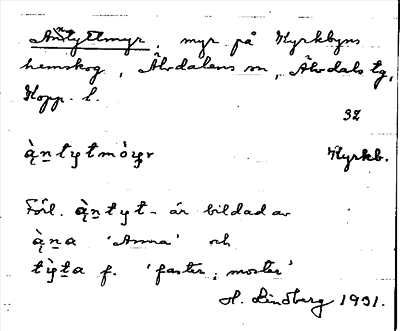 Antytmyr, myr på Kyrkbyns
hemskog, Älvdalens sn, Älvdals tg,
Kopp. l.
32
ą̀n̠tytmòyr Kyrkb.
Förl. ą̀n̠tyt- är bildad av
ą̀n̠a 'Anna' och
tỳt̠a f. 'faster, moster'
H. Lindberg 1931.